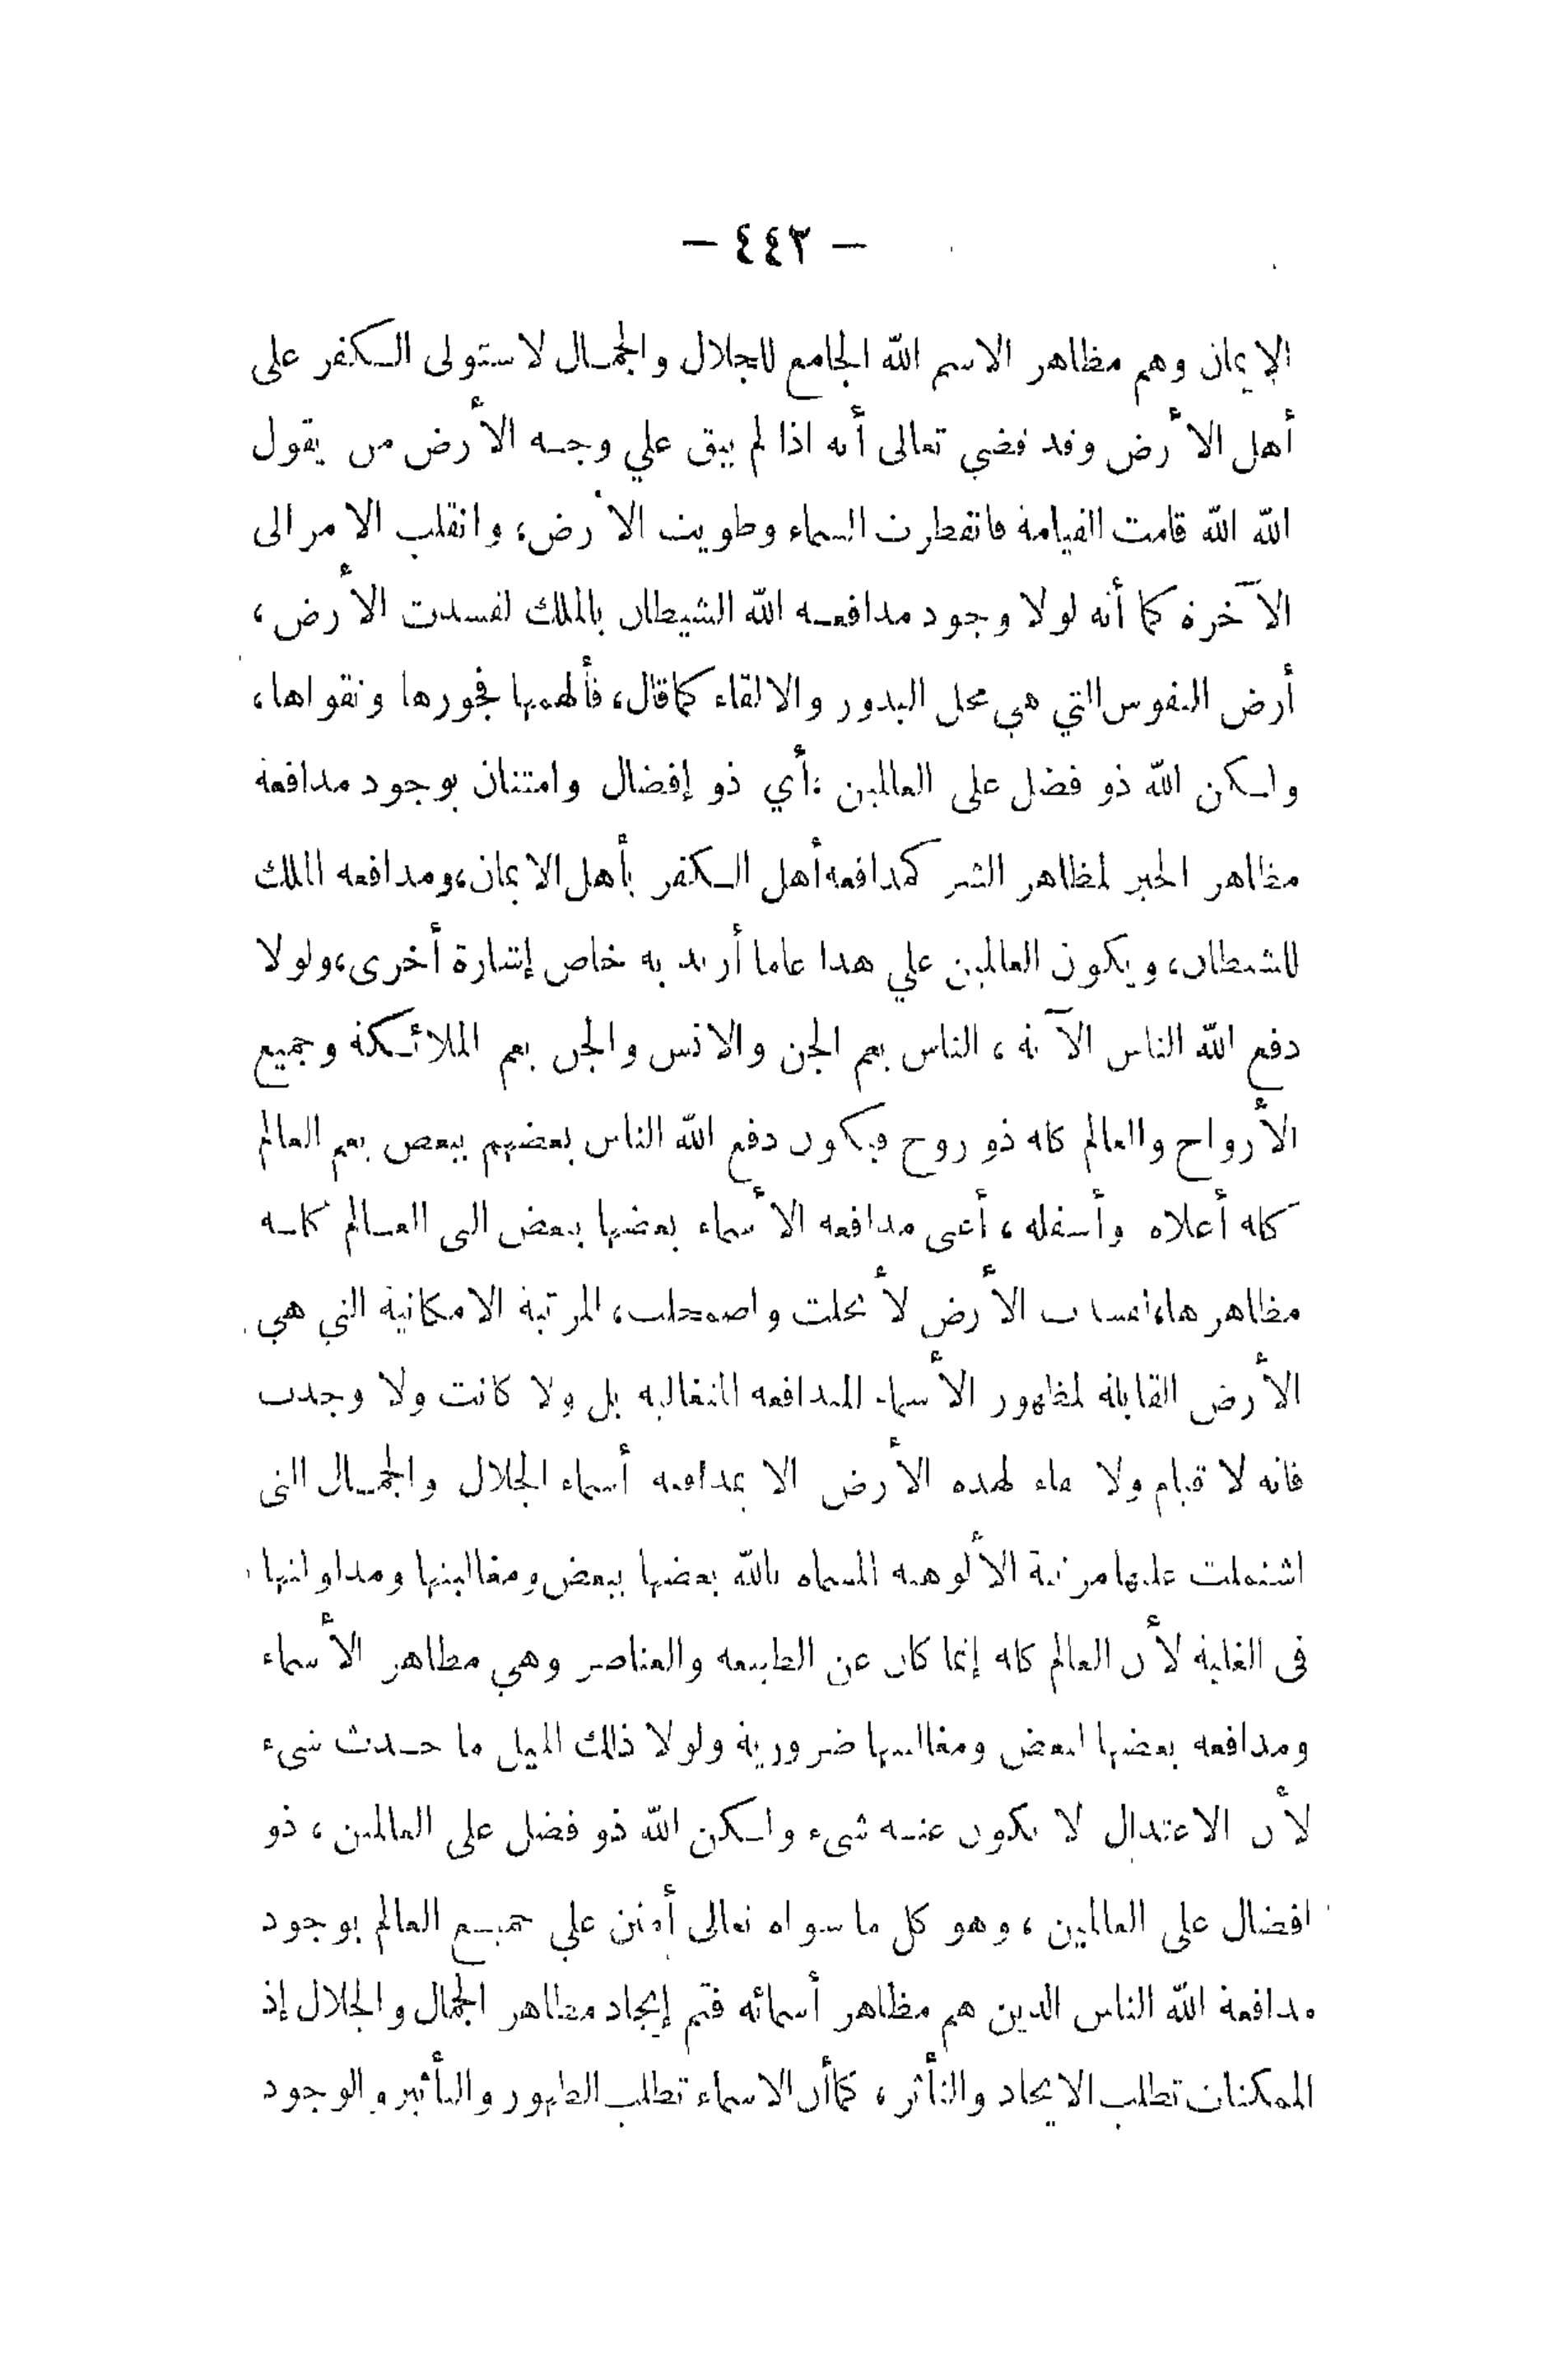 — ٤٤٢ —
الإيمان وهم مظاهر الاسم الله الجامع للجلال والجمال لاستولى الكفر على
أهل الأرض وقد قضي تعالى أنه اذا لم يبق علي وجه الأرض من يقول
الله الله قامت القيامة فانفطرت السماء وطويت الأرض، وانقلب الامر الى
الآخرة كما أنه لولا وجود مدافعة الله الشيطان بالملك لفسدت الأرض،
أرض النفوس التي هي محل البدور والالقاء كما قال، فألهمها فجورها وتقواها،
ولكن الله ذو فضل على العالمين ،أي ذو إفضال وامتنان بوجود مدافعة
مظاهر الخير لمظاهر الشر كمدافعة أهل الكفر بأهل الايمان،ومدافعة الملك
للشيطان، ويكون العالمين علي هذا عاما أريد به خاص إشارة أخرى،ولولا
دفع الله الناس الآية ، الناس يعم الجن والانس والجن يعم الملائكة وجميع
الأرواح والعالم كله ذو روح فيكون دفع الله الناس بعضهم ببعض يعم العالم
كله أعلاه وأسفله ، أعنى مدافعة الأسماء بعضها ببعض التى العالم كله
مظاهرها، الأرض لأنحلت واضمحلت، المرتبة الامكانية التي هي
الأرض القابلة لظهور الأسماء المتدافعة المتغالبة بل ولا كانت ولا وجدت
فانه لا قيام ولا بقاء لهذه الأرض الا بمدافعة أسماء الجلال والجمال التى
اشتملت عليها مرتبة الألوهية المسماة بالله بعضها ببعض ومغالبتها ومداولتها
فى الغلبة لأن العالم كله إنما كان عن الطبيعة والعناصر وهي مظاهر الأسماء
ومدافعة بعضها لبعض ومغالبتها ضرورية ولولا ذلك الميل ما حدث شىء
لأن الاعتدال لا يكون عنه شىء ولكن الله ذو فضل على العالمين ، ذو
افضال على العالمين ، وهو كل ما سواه تعالى أمتن علي جميع العالم بوجود
مدافعة الله الناس الذين هم مظاهر أسمائه فتم إيجاد مظاهر الجمال والجلال إذ
الممكنات تطلب الايجاد والتأثر ، كما أن الاسماء تطلب الظهور والتأثير والوجود